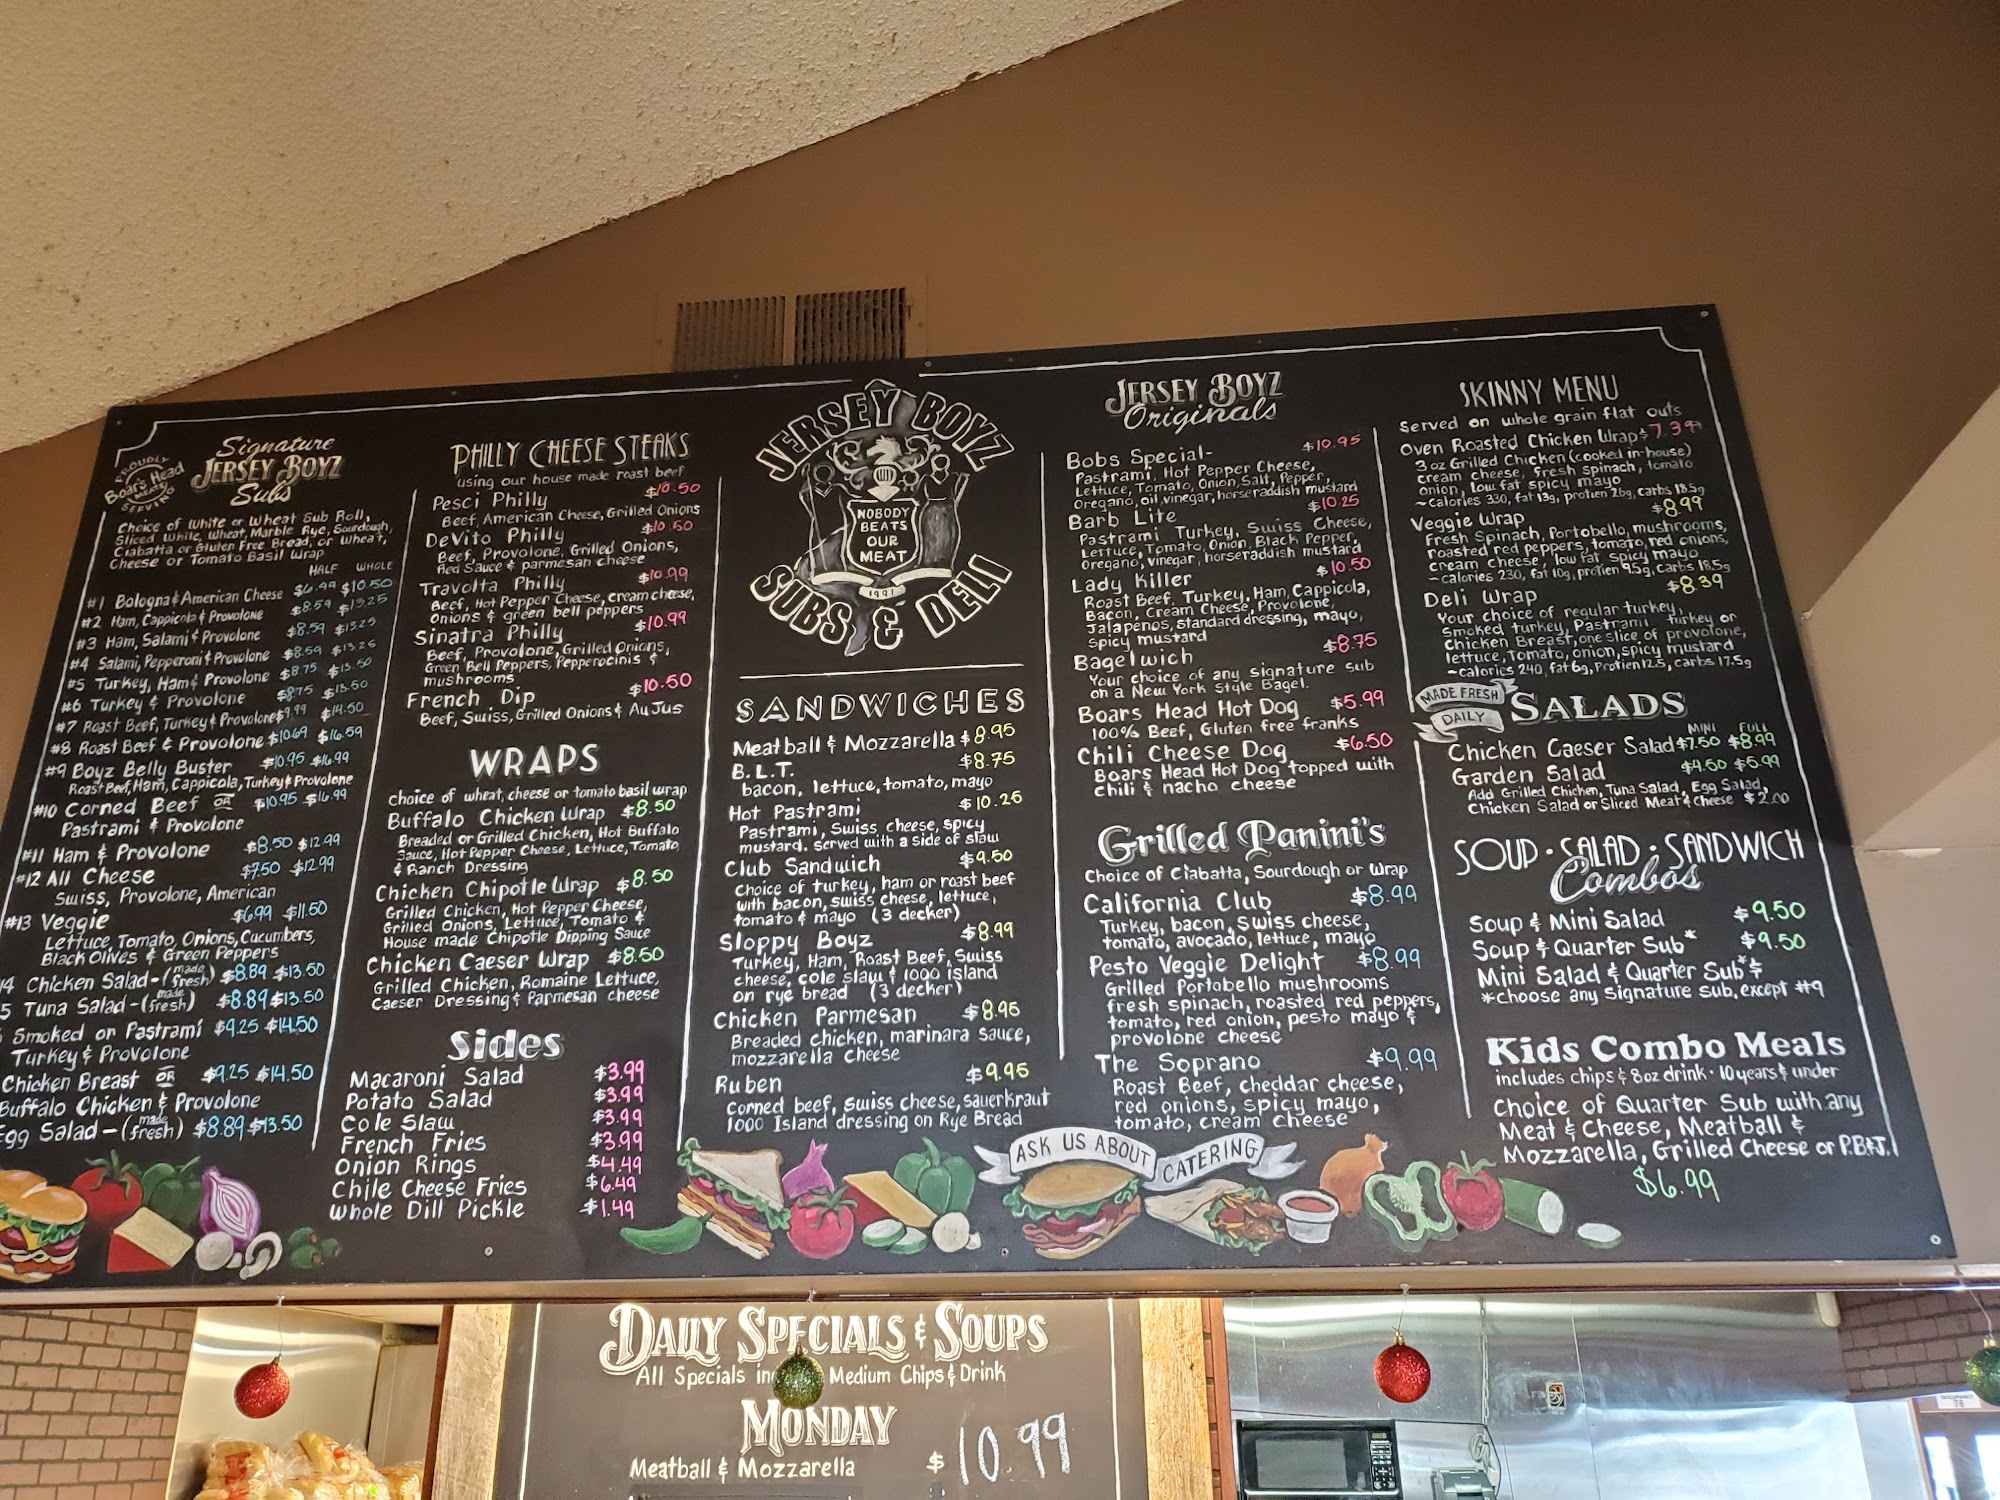 PROUDLY
Boar's Head
MEATS
SERVING
Signature
JERSEY BOYZ
Subs
Choice of White or Wheat Sub Roll,
Sliced White, Wheat, Marble Rye, Sourdough,
Ciabatta or Gluten Free Bread, or Wheat,
Cheese or Tomato Basil Wrap
HALF WHOLE
#1 Bologna & American Cheese $6.99 $10.50
#2 Ham, Cappicola & Provolone $8.59 $13.25
#3 Ham, Salami & Provolone $8.59 $13.25
#4 Salami, Pepperoni & Provolone $8.59 $13.25
#5 Turkey, Ham & Provolone $8.75 $13.50
#6 Turkey & Provolone $8.75 $13.50
#7 Roast Beef, Turkey & Provolone $9.99 $14.50
#8 Roast Beef & Provolone $10.69 $16.59
#9 Boyz Belly Buster $10.95 $16.99
Roast Beef, Ham, Cappicola, Turkey & Provolone
#10 Corned Beef OR $10.95 $16.99
Pastrami & Provolone
#11 Ham & Provolone $8.50 $12.99
#12 All Cheese $7.50 $12.99
Swiss, Provolone, American
#13 Veggie $6.99 $11.50
Lettuce, Tomato, Onions, Cucumbers,
Black Olives & Green Peppers
14 Chicken Salad - (made fresh) $8.89 $13.50
5 Tuna Salad - (made fresh) $8.89 $13.50
Smoked or Pastrami $9.25 $14.50
Turkey & Provolone
Chicken Breast OR $9.25 $14.50
Buffalo Chicken & Provolone
Egg Salad - (made fresh) $8.89 $13.50
PHILLY CHEESE STEAKS
using our house made roast beef
Pesci Philly $10.50
Beef, American Cheese, Grilled Onions
DeVito Philly $10.50
Beef, Provolone, Grilled Onions,
Red Sauce & parmesan cheese
Travolta Philly $10.99
Beef, Hot Pepper Cheese, cream cheese,
onions & green bell peppers
Sinatra Philly $10.99
Beef, Provolone, Grilled Onions,
Green Bell Peppers, Pepperocinis &
mushrooms
French Dip $10.50
Beef, Swiss, Grilled Onions & Au Jus
WRAPS
choice of wheat, cheese or tomato basil wrap
Buffalo Chicken Wrap $8.50
Breaded or Grilled Chicken, Hot Buffalo
Sauce, Hot Pepper Cheese, Lettuce, Tomato
& Ranch Dressing
Chicken Chipotle Wrap $8.50
Grilled Chicken, Hot Pepper Cheese,
Grilled Onions, Lettuce, Tomato &
House made Chipotle Dipping Sauce
Chicken Caeser Wrap $8.50
Grilled Chicken, Romaine Lettuce,
Caeser Dressing & Parmesan cheese
Sides
Macaroni Salad $3.99
Potato Salad $3.99
Cole Slaw $3.99
French Fries $3.99
Onion Rings $4.49
Chile Cheese Fries $6.49
Whole Dill Pickle $1.49
JERSEY BOYZ
NOBODY
BEATS
OUR
MEAT
1991
SUBS & DELI
SANDWICHES
Meatball & Mozzarella $8.95
B.L.T. $8.75
bacon, lettuce, tomato, mayo
Hot Pastrami $10.25
Pastrami, Swiss cheese, spicy
mustard. served with a side of slaw
Club Sandwich $9.50
Choice of turkey, ham or roast beef
with bacon, swiss cheese, lettuce,
tomato & mayo (3 decker)
Sloppy Boyz $8.99
Turkey, Ham, Roast Beef, Swiss
cheese, cole slaw & 1000 island
on rye bread (3 decker)
Chicken Parmesan $8.95
Breaded chicken, marinara sauce,
mozzarella cheese
Ruben $9.95
Corned beef, swiss cheese, sauerkraut
1000 Island dressing on Rye Bread
JERSEY BOYZ
Originals
Bobs Special- $10.95
Pastrami, Hot Pepper Cheese,
Lettuce, Tomato, Onion, Salt, Pepper,
Oregano, oil, vinegar, horseraddish mustard
Barb Lite $10.25
Pastrami Turkey, Swiss Cheese,
Lettuce, Tomato, Onion, Black Pepper,
Oregano, vinegar, horseraddish mustard
Lady Killer $10.50
Roast Beef, Turkey, Ham, Cappicola,
Bacon, Cream Cheese, Provolone,
Jalapenos, standard dressing, mayo,
spicy mustard
Bagelwich $8.75
Your choice of any signature sub
on a New York Style Bagel.
Boars Head Hot Dog $5.99
100% Beef, Gluten free franks
Chili Cheese Dog $6.50
Boars Head Hot Dog topped with
chili & nacho cheese
Grilled Panini's
Choice of Ciabatta, Sourdough or Wrap
California Club $8.99
Turkey, bacon, Swiss cheese,
tomato, avocado, lettuce, mayo
Pesto Veggie Delight $8.99
Grilled Portobello mushrooms
fresh spinach, roasted red peppers,
tomato, red onion, pesto mayo &
provolone cheese
The Soprano $9.99
Roast Beef, cheddar cheese,
red onions, spicy mayo,
tomato, cream cheese
SKINNY MENU
Served on whole grain flat outs
Oven Roasted Chicken Wrap $7.39
3 oz Grilled Chicken (cooked in-house)
cream cheese, fresh spinach, tomato
onion, low fat spicy mayo
~calories 330, fat 13g, protien 26g, carbs 18.5g
Veggie Wrap $8.99
Fresh Spinach, Portobello, mushrooms,
roasted red peppers, tomato, red onions,
cream cheese, low fat spicy mayo
~calories 230, fat 10g, protien 9.5g, carbs 18.5g
Deli Wrap $8.39
Your choice of regular turkey,
Smoked turkey, Pastrami turkey or
Chicken Breast, one slice of provolone,
lettuce, Tomato, onion, spicy mustard
~calories 240, fat 6g, Protien 12.5, carbs 17.5g
MADE FRESH
DAILY
SALADS
MINI FULL
Chicken Caeser Salad $7.50 $8.99
Garden Salad $4.50 $5.99
Add Grilled Chicken, Tuna Salad, Egg Salad,
Chicken Salad or Sliced Meat & Cheese $2.00
SOUP · SALAD · SANDWICH
Combos
Soup & Mini Salad $9.50
Soup & Quarter Sub* $9.50
Mini Salad & Quarter Sub*
*choose any Signature Sub, except #9
Kids Combo Meals
includes chips & 8oz drink · 10 years & under
Choice of Quarter Sub with any
Meat & Cheese, Meatball &
Mozzarella, Grilled Cheese or P.B.&J.
$6.99
ASK US ABOUT
CATERING
DAILY SPECIALS & SOUPS
All Specials Medium Chips & Drink
MONDAY
Meatball & Mozzarella $10.99